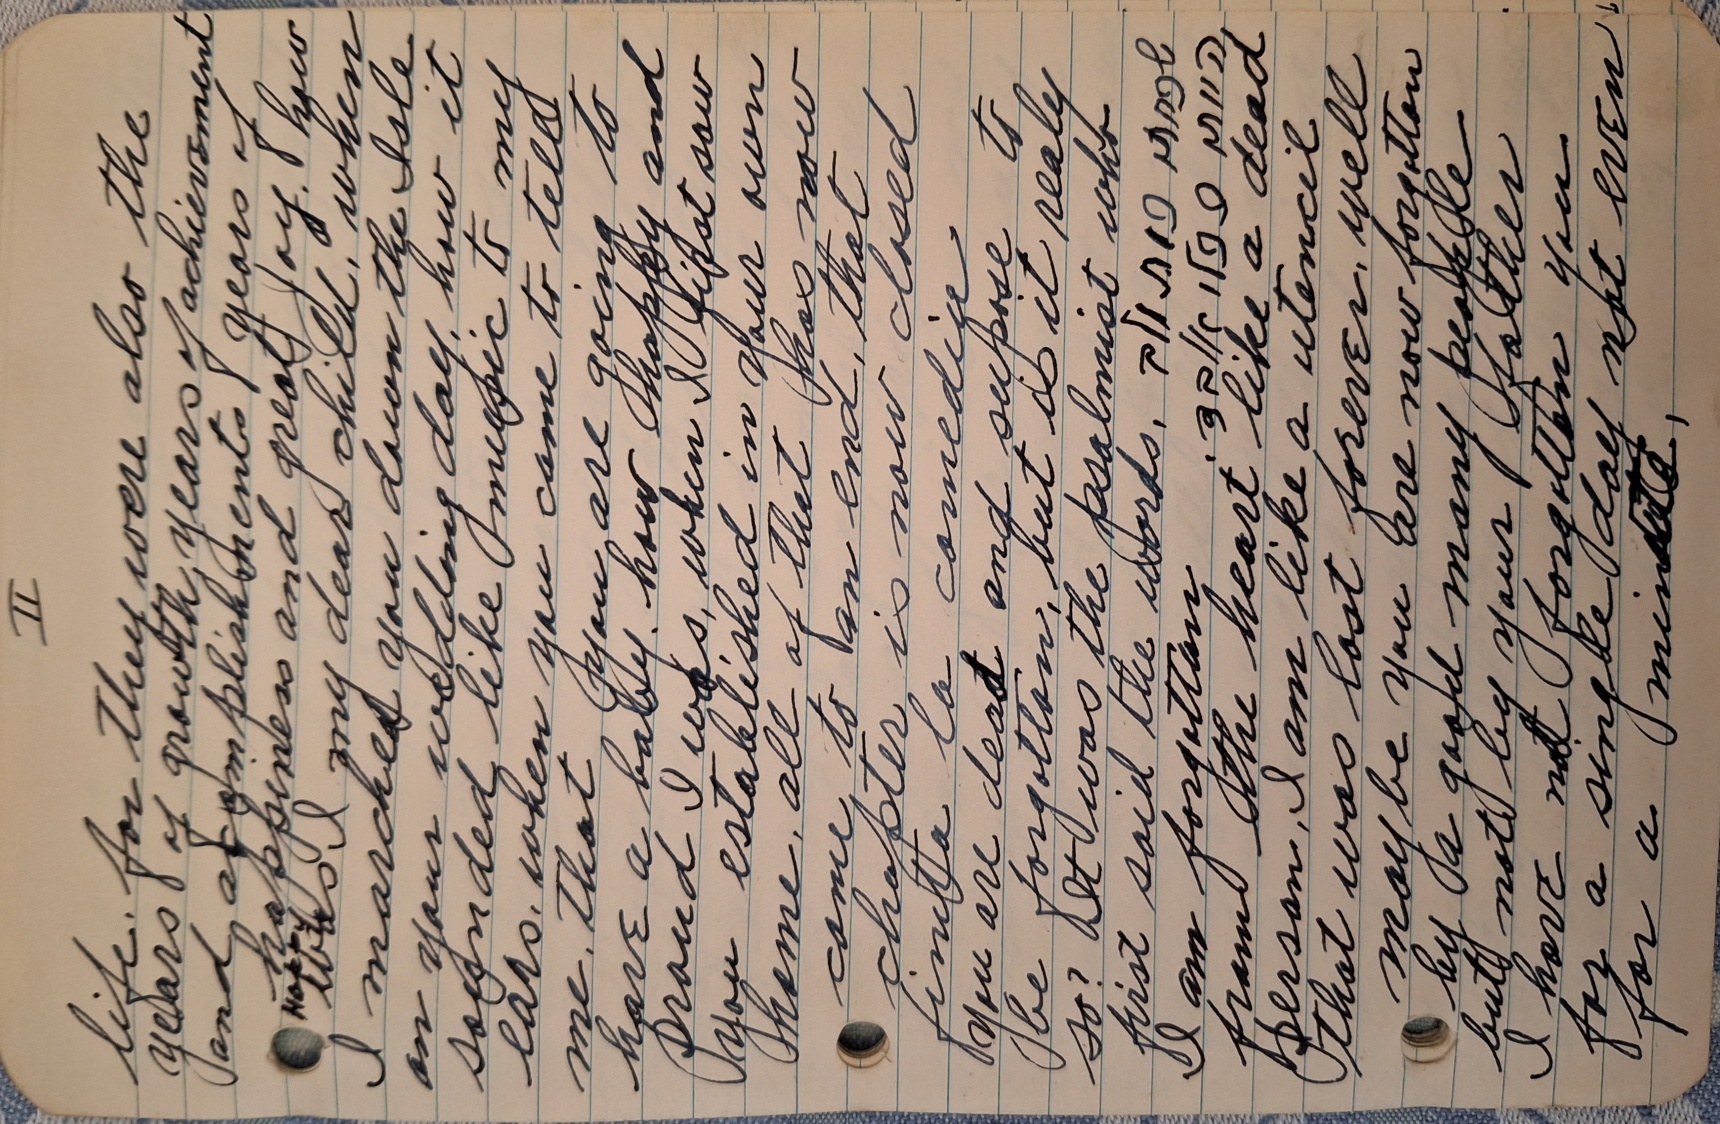 II
life. for they were also the
years of growth, years of achievement
and accomplishments, years of
happiness and great joy. how
Happy Was I my dear child, when
I marched you down the Isle
on your wedding day, how it
sounded like music to my
ears, when you came to tell
me, that you are going to
have a baby. how happy and
Proud I was, when I first saw
you established in your own
home, all of that has now
come to an end, that
chapter is now closed
finitta la comedia
you are dead and supose to
be forgotton, but is it realy
so? It was the psalmist who
first said the words,
I am forgotton
from the heart like a dead
person, I am like a utencil
that was lost forever, well
may be you are now forgotton
by a good many people
but not by your father
I have not forgotton you
for a single day not even
for a minute,